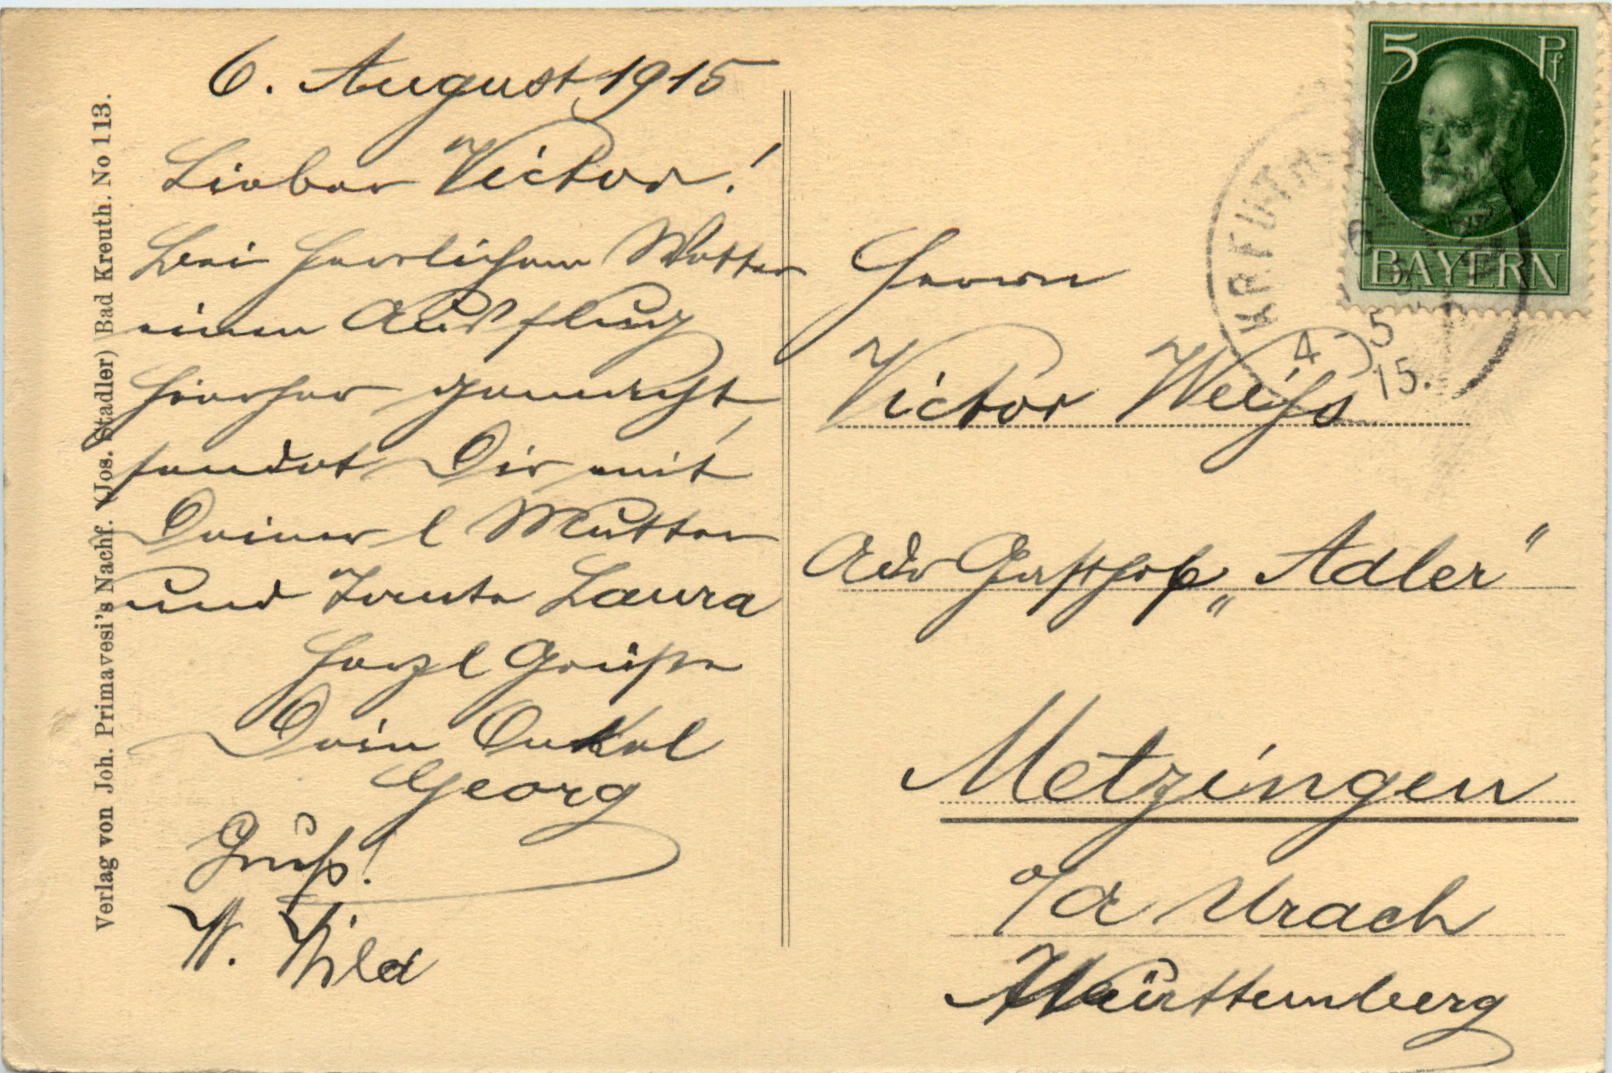 6. August 1915
Lieber Victor!
Bei herrlichem Wetter
einen Ausflug
hierher gemacht,
sendet Dir mit
Deiner l Mutter
und Tante Laura
herzl Grüße
Dein Onkel
Georg
Gruß!
W. Wild
Verlag von Joh. Primavesi's Nachf. (Jos. Stadler) Bad Kreuth. No 113.
5 Pf
BAYERN
KREUTH
4-5
15.
Herrn
Victor Weiß
Adr Gasthof „Adler"
Metzingen
o/a Urach
Württemberg